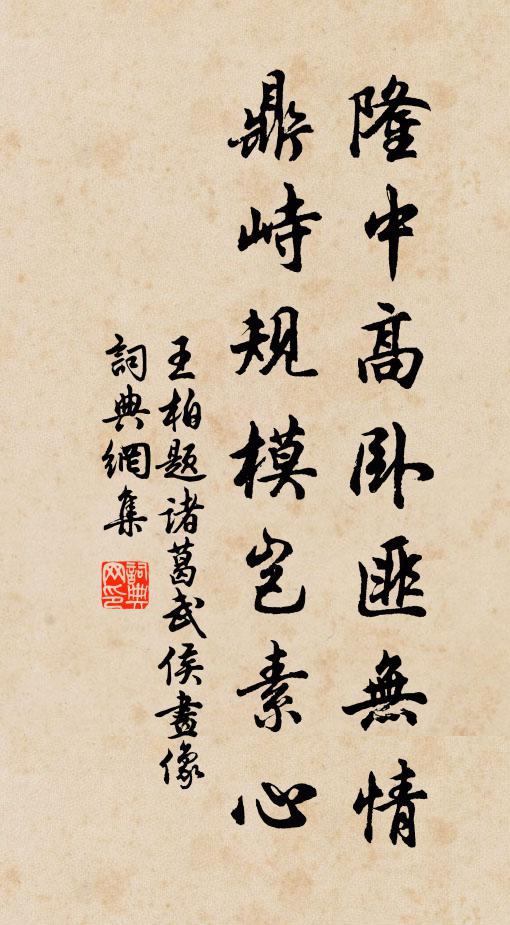 隆中高卧匪無情
鼎峙規模豈素心
王柏題诸葛武侯畫像
詞典網集
詞典網印